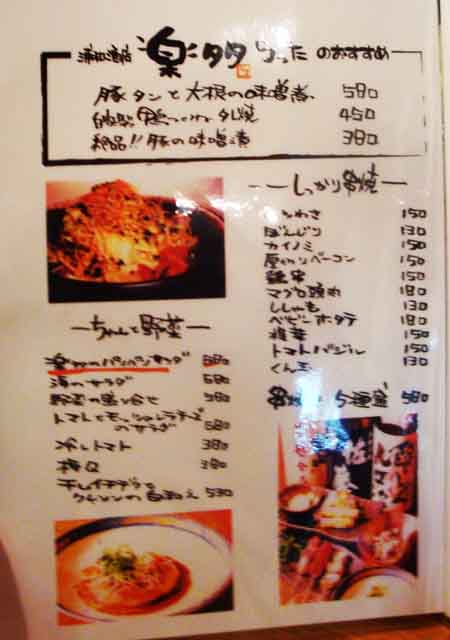 楽多 のおすすめ
豚タンと大根の味噌煮 580
タレ焼 450
絶品!!豚の味噌漬 380
しっかり串焼
150
ぼんじり 130
カイノミ 150
厚切りベーコン 150
150
マグロ頭肉 180
ししゃも 130
ベビーホタテ 180
椎茸 150
トマトバジル 150
くん玉 130
5種盛 580
ちゃんと野菜
楽多のパリパリサラダ 580
海のサラダ 580
野菜の盛り合せ 580
トマトとモッツァレラチーズ
のサラダ 580
冷しトマト 380
380
干しイチヂクと
クルミの白和え 530